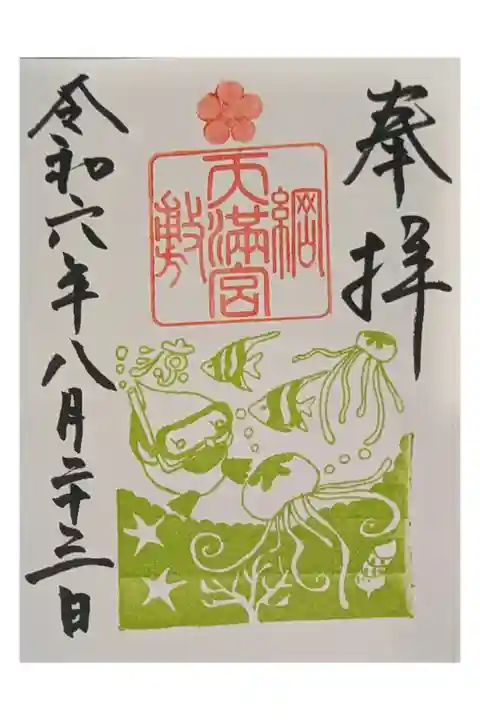 奉拝
綱敷
天満宮
涼
令和六年八月二十三日